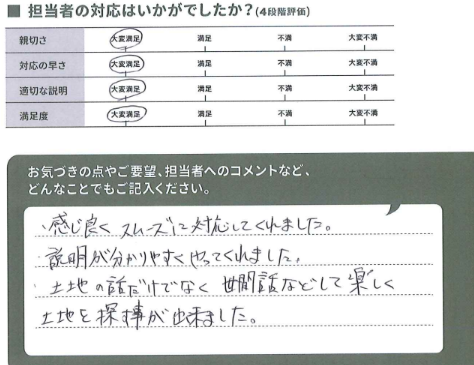 ■ 担当者の対応はいかがでしたか?(4段階評価)
親切さ 大変満足 満足 不満 大変不満
対応の早さ 大変満足 満足 不満 大変不満
適切な説明 大変満足 満足 不満 大変不満
満足度 大変満足 満足 不満 大変不満
お気づきの点やご要望、担当者へのコメントなど、
どんなことでもご記入ください。
・感じ良く スムーズに対応してくれました。
・説明が分かりやすくやってくれました。
・土地の話だけでなく 世間話などして楽しく
土地を探す事が出来ました。